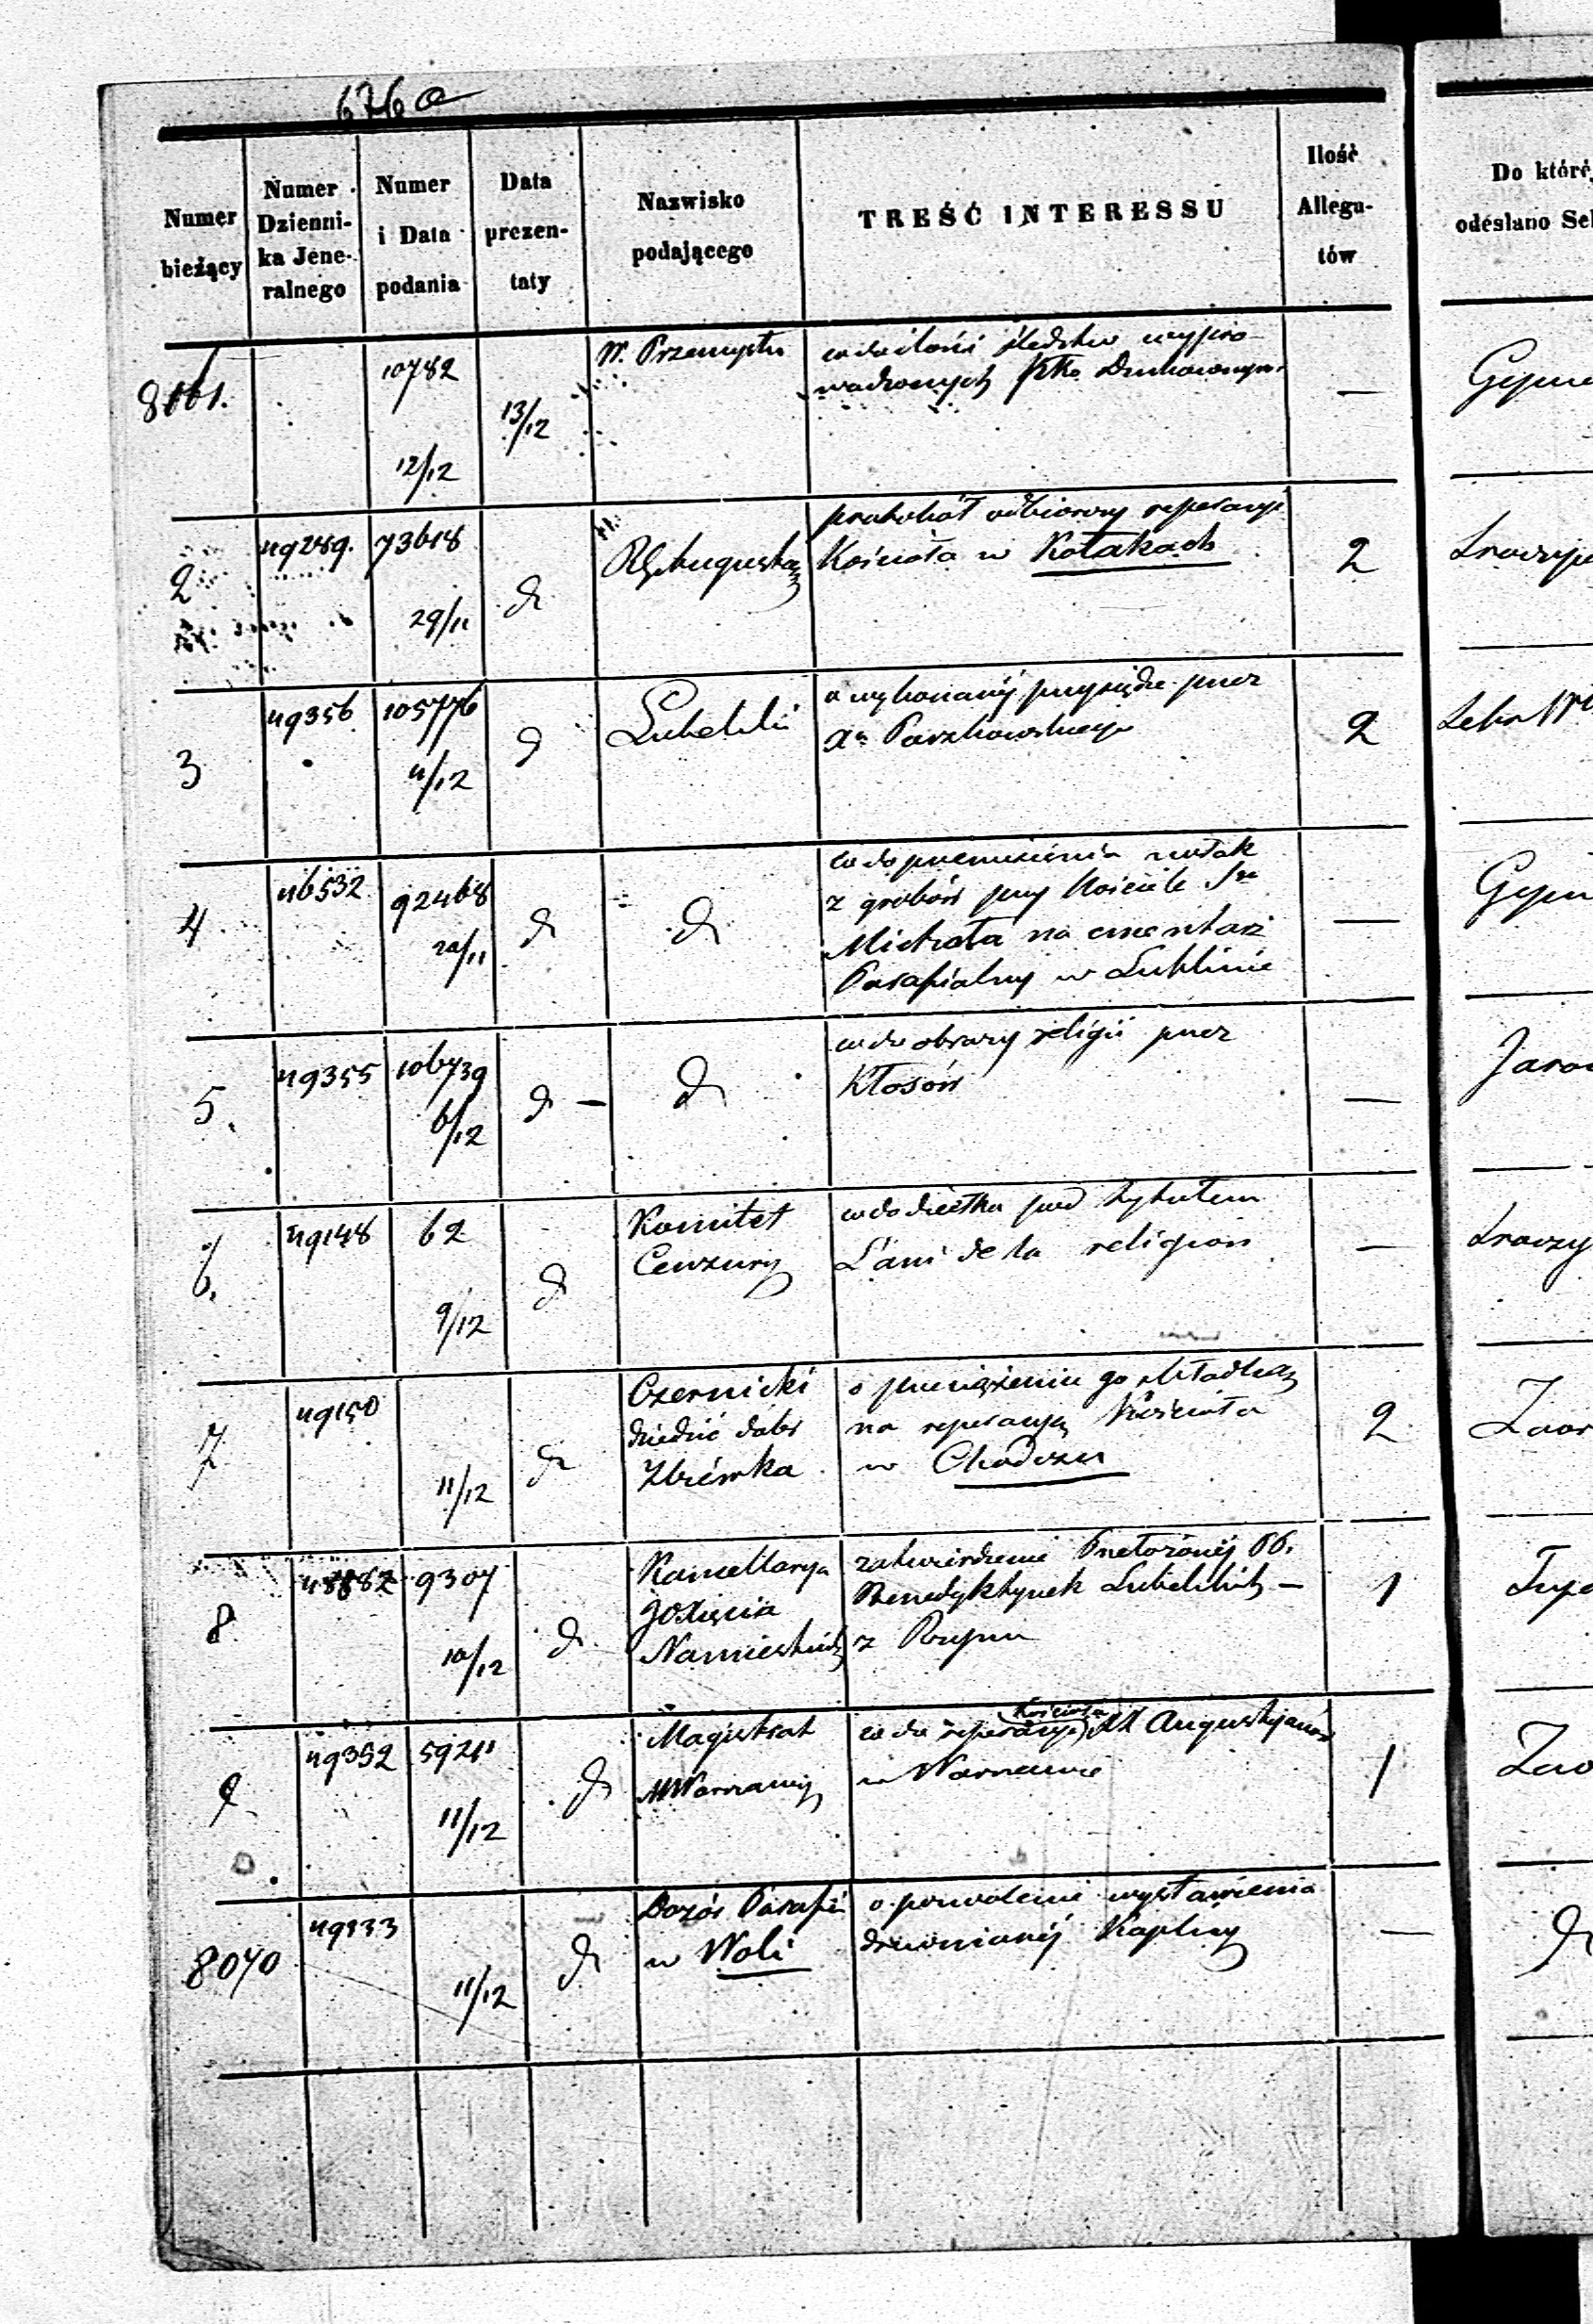 676 a
Numer bieżący
Numer Dzienni-ka Jene-ralnego
Numer i Data podania
Data prezen-taty
Nazwisko podającego
TREŚĆ INTERESSU
Ilość Allegu-tów
Do któré
odesłano Sek
8061. 10782 12/12 13/12 W. Przemysłu
co do ilości śledztw wypro-
wadzonych
—
2 49289. 73618 29/11 d
protokół odbiorczy reperacyi
Kościoła w Kołakach
2
3 49356 105776 4/12 d Lubelski
o wykonaniéj przysiędze przez
Xa Paszkowskiego
2
4 46532 92468 20/11 d d
co do przeniesienia zwłok
z grobów przy Kościele Sgo
Michała na cmentarz
Parafialny w Lublinie
—
5. 49355 106739 6/12 d — d
co do obrazy religii przez
Kłosów
—
6. 49148 62 9/12 d
Komitet
Cenzury
co do dziełka pod tytułem
L'ami de la religion
—
7 49150 11/12 d
Czernicki
dziedzic dóbr
Zbiéwka
o przeciążeniu go składką
na reperacyą Kościoła
w Chodczu
2
8 9307 10/12 d
Kancellarya
JOXięcia
Namiestnika
zatwierdzenie Przełożonéj PP.
Benedyktynek Lubelskich —
z Rzymu
1
9 49352 5921 11/12 d
Magistrat
MWarszawy
co do reperacyi Kościoła XX Augustyanów
w Warszawie
1
8070 49133 11/12 d
Dozór Parafii
w Woli
o pozwolenie wystawienia
drewnianéj Kaplicy
—
d